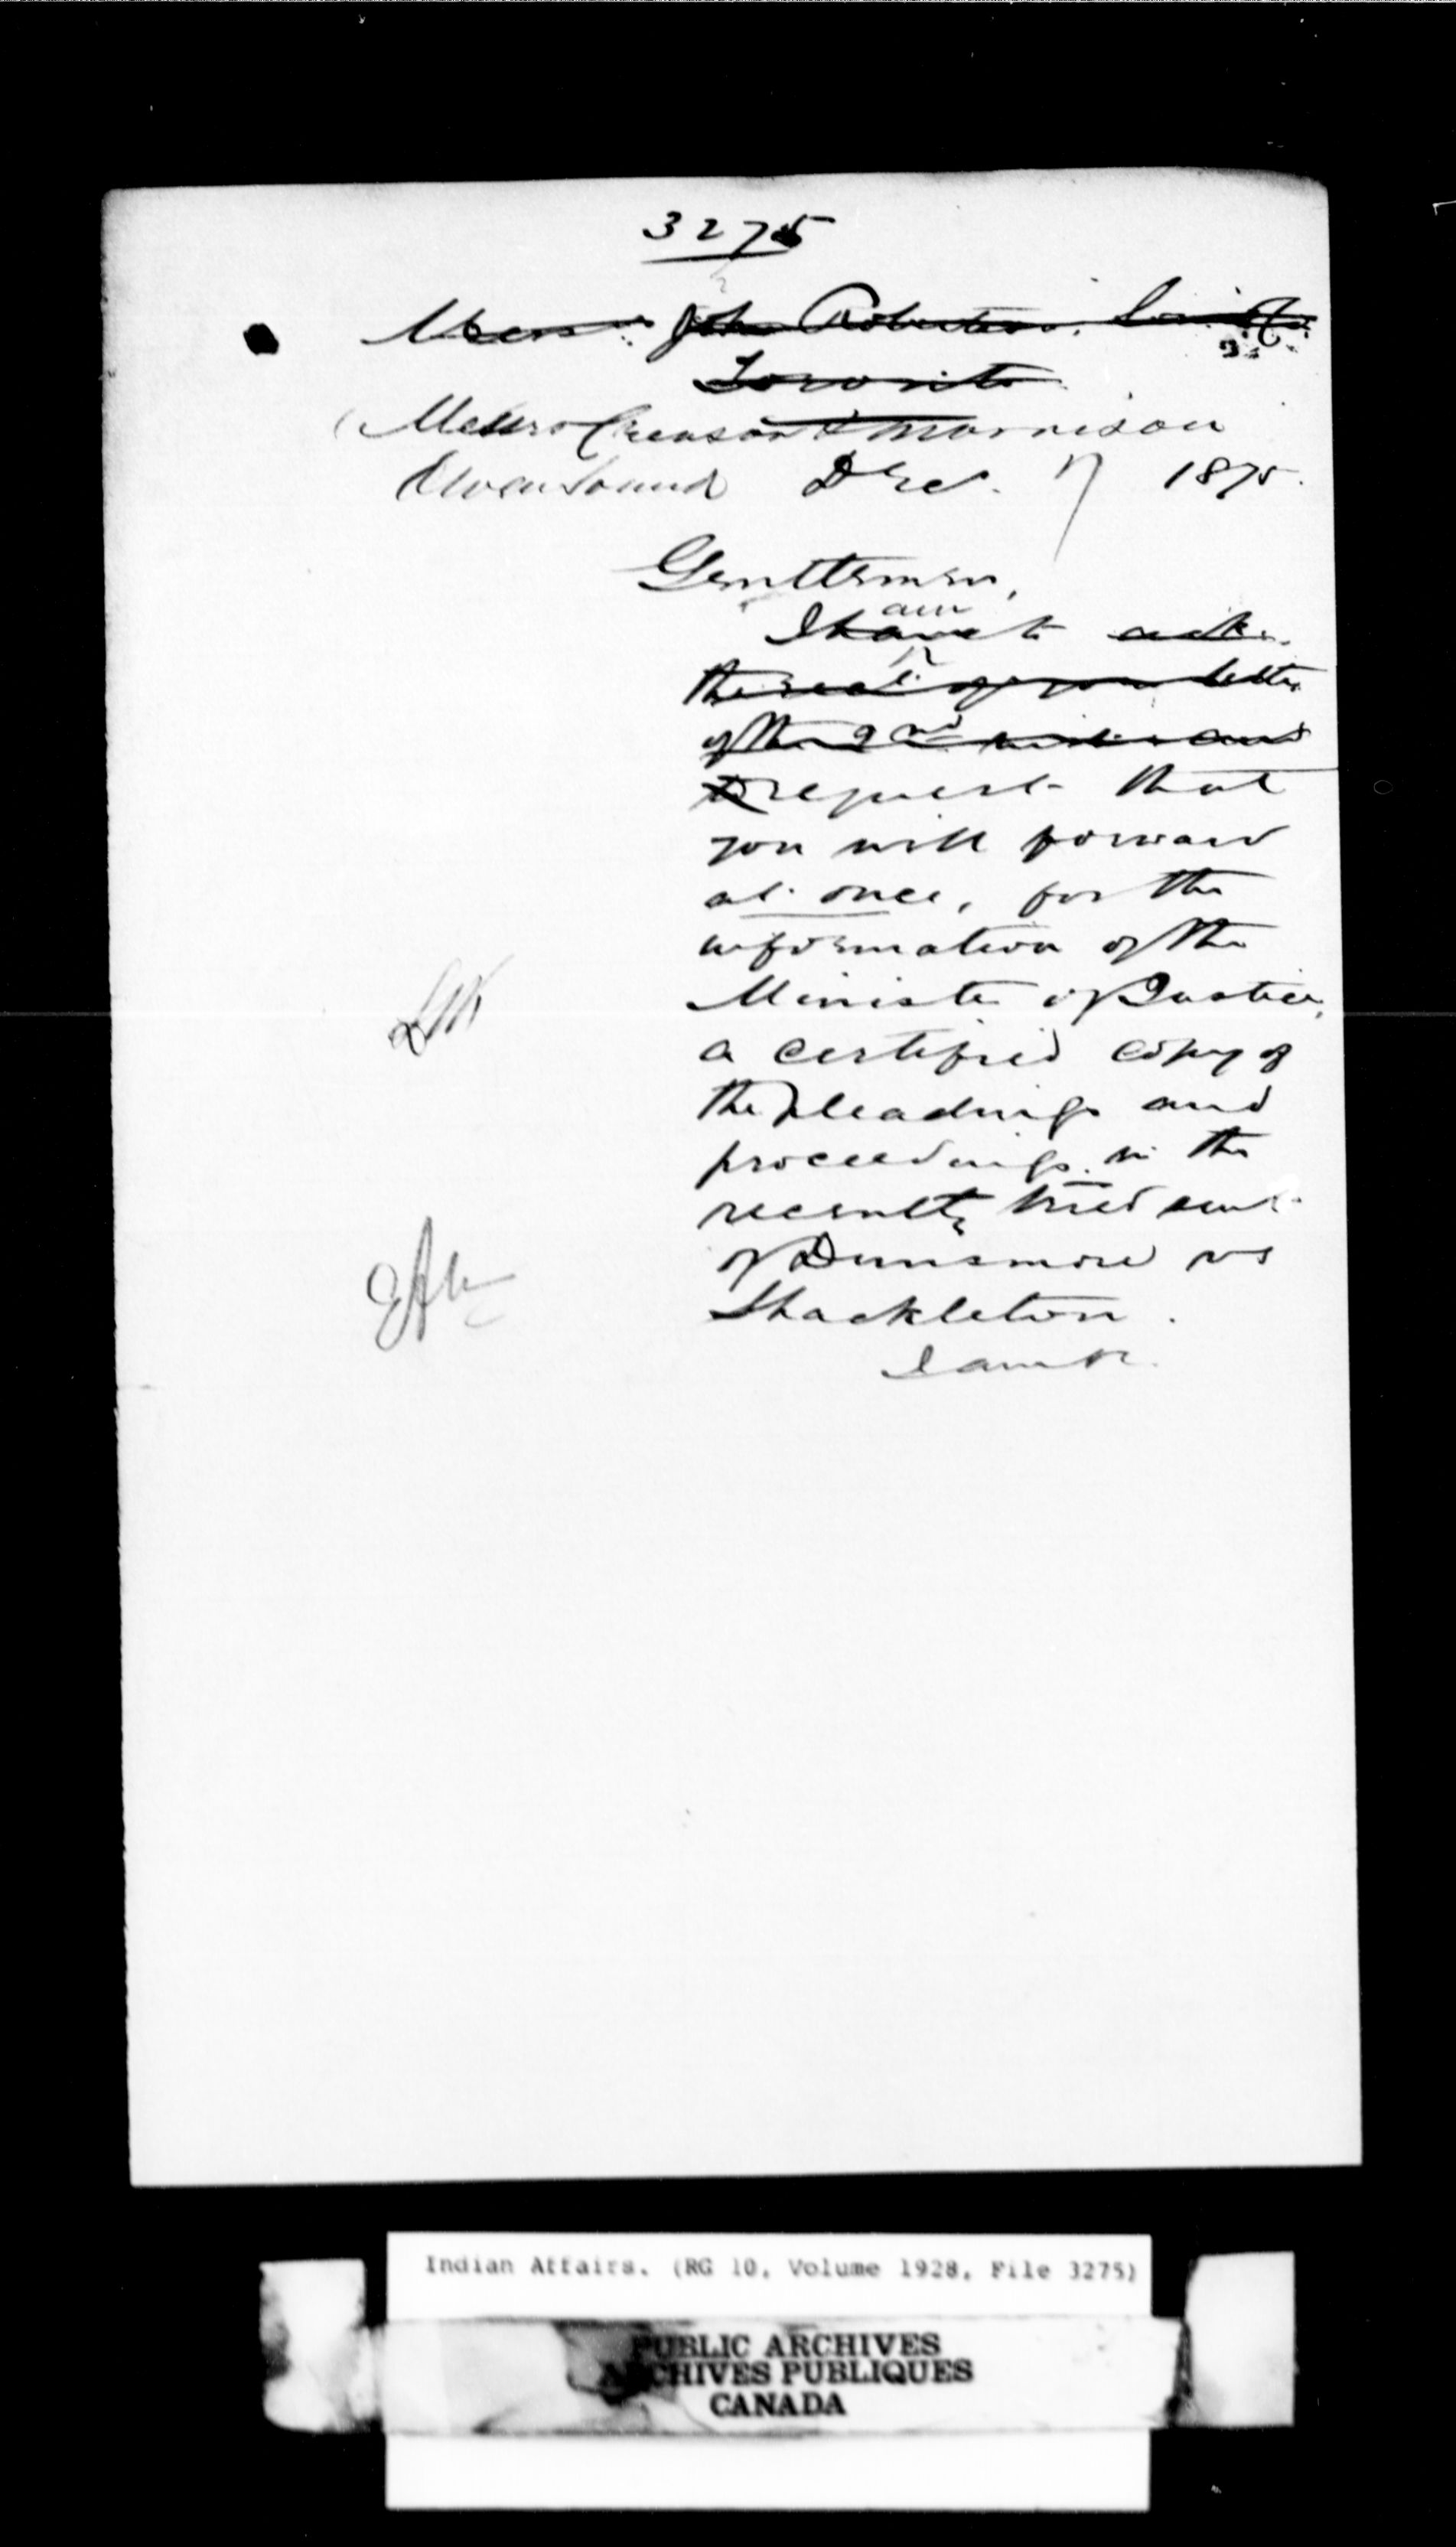 3275
Messrs John Robertson,
Toronto
Messrs Creasor & Morrison
Owen Sound Dec. 7 1875.
Gentlemen,
I have am to ack.
the rect. of your letter
of the 2nd inst. and
to request that
you will forward
at once, for the
information of the
Minister of Justice,
a certified copy of
the pleadings and
proceedings in the
recently tried suit
of Dunsmore vs
Shackleton.
I am &c.
Indian Affairs. (RG 10, Volume 1928, File 3275)
PUBLIC ARCHIVES
ARCHIVES PUBLIQUES
CANADA